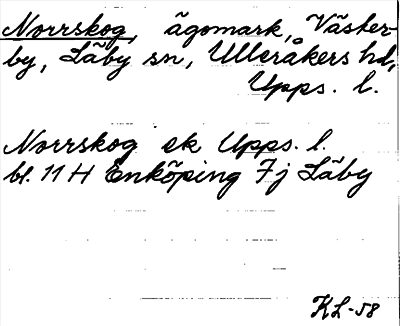 Norrskog, ägomark, Väsker-
by, Läby sn, Ulleråkers hd,
Upps. l.
Norrskog ek Upps. l.
bl. 11 H Enköping 7j Läby
KL-58